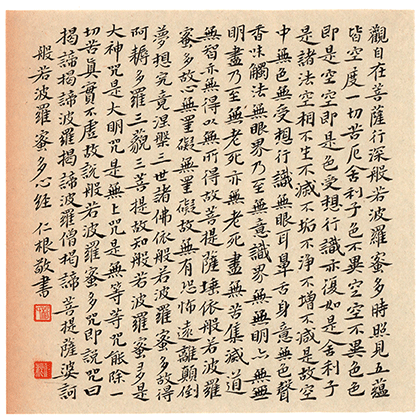 觀自在菩薩行深般若波羅蜜多時照見五蘊
皆空度一切苦厄舍利子色不異空空不異色色
即是空空即是色受想行識亦復如是舍利子
是諸法空相不生不滅不垢不淨不增不減是故空
中無色無受想行識無眼耳鼻舌身意無色聲
香味觸法無眼界乃至無意識界無無明亦無無
明盡乃至無老死亦無老死盡無苦集滅道
無智亦無得以無所得故菩提薩埵依般若波羅
蜜多故心無罣礙無罣礙故無有恐怖遠離顛倒
夢想究竟涅槃三世諸佛依般若波羅蜜多故得
阿耨多羅三藐三菩提故知般若波羅蜜多是
大神咒是大明咒是無上咒是無等等咒能除一
切苦眞實不虛故說般若波羅蜜多咒即說咒曰
揭諦揭諦波羅揭諦波羅僧揭諦菩提薩婆訶
般若波羅蜜多心經 仁根敬書